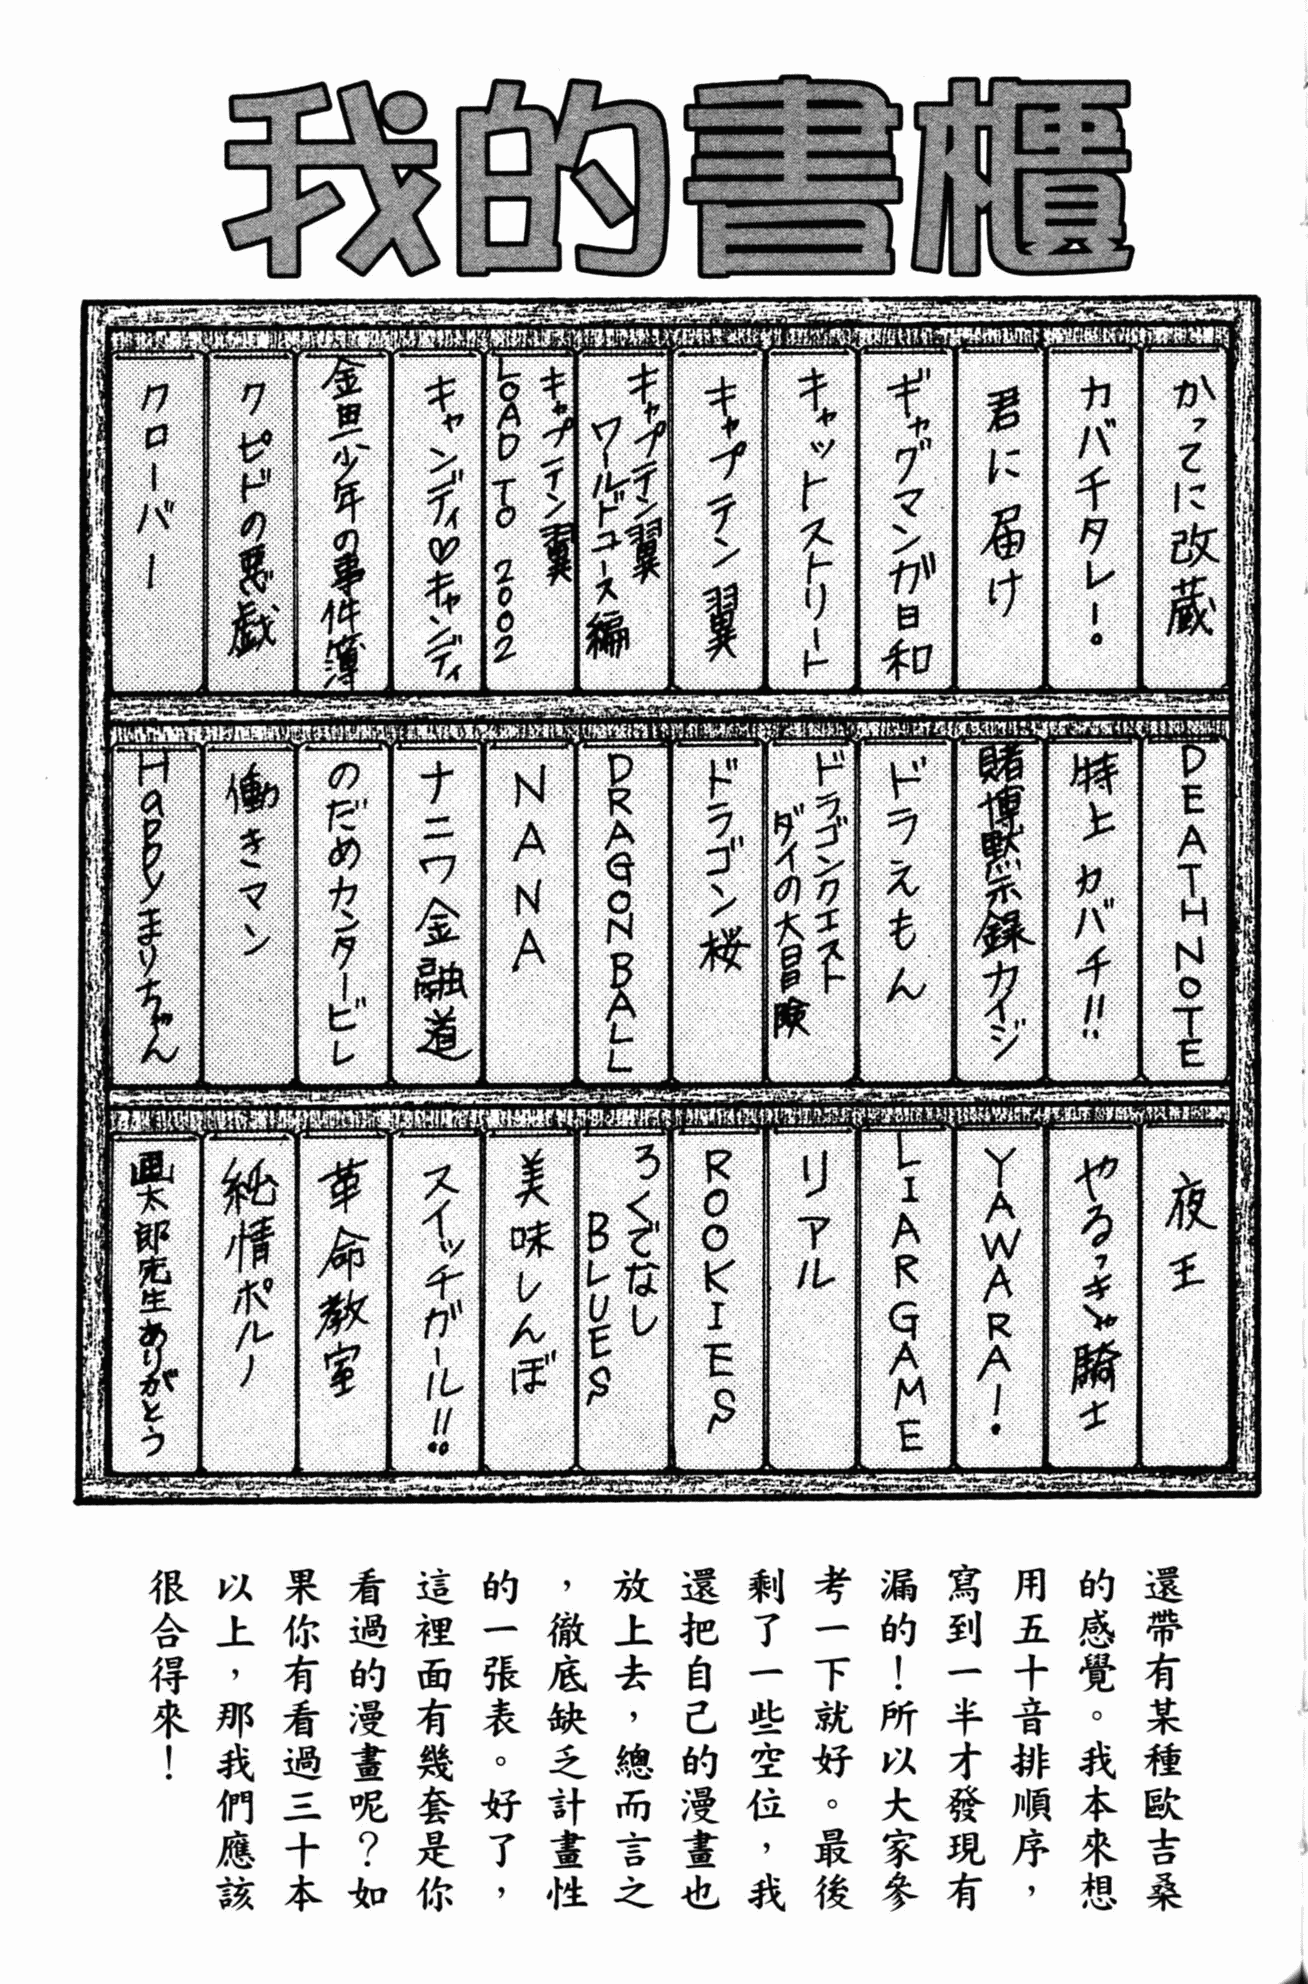 我的書櫃
かってに改蔵
カバチタレ！
君に届け
ギャグマンガ日和
キャットストリート
キャプテン翼
キャプテン翼
ワールドユース編
キャプテン翼
LOAD TO 2002
キャンディ♡キャンディ
金田一少年の事件簿
クピドの悪戯
クローバー
DEATH NOTE
特上カバチ!!
賭博黙示録カイジ
ドラえもん
ドラゴンクエスト
ダイの大冒険
ドラゴン桜
DRAGON BALL
NANA
ナニワ金融道
のだめカンタービレ
働きマン
Happyまりちゃん
夜王
やるっきゃ騎士
YAWARA!
LIAR GAME
リアル
ROOKIES
ろくでなし
BLUES
美味しんぼ
スイッチガール!!
革命教室
純情ポルノ
画太郎先生ありがとう
還帶有某種歐吉桑
的感覺。我本來想
用五十音排順序，
寫到一半才發現有
漏的！所以大家參
考一下就好。最後
剩了一些空位，我
還把自己的漫畫也
放上去，總而言之
，徹底缺乏計畫性
的一張表。好了，
這裡面有幾套是你
看過的漫畫呢？如
果你有看過三十本
以上，那我們應該
很合得來！